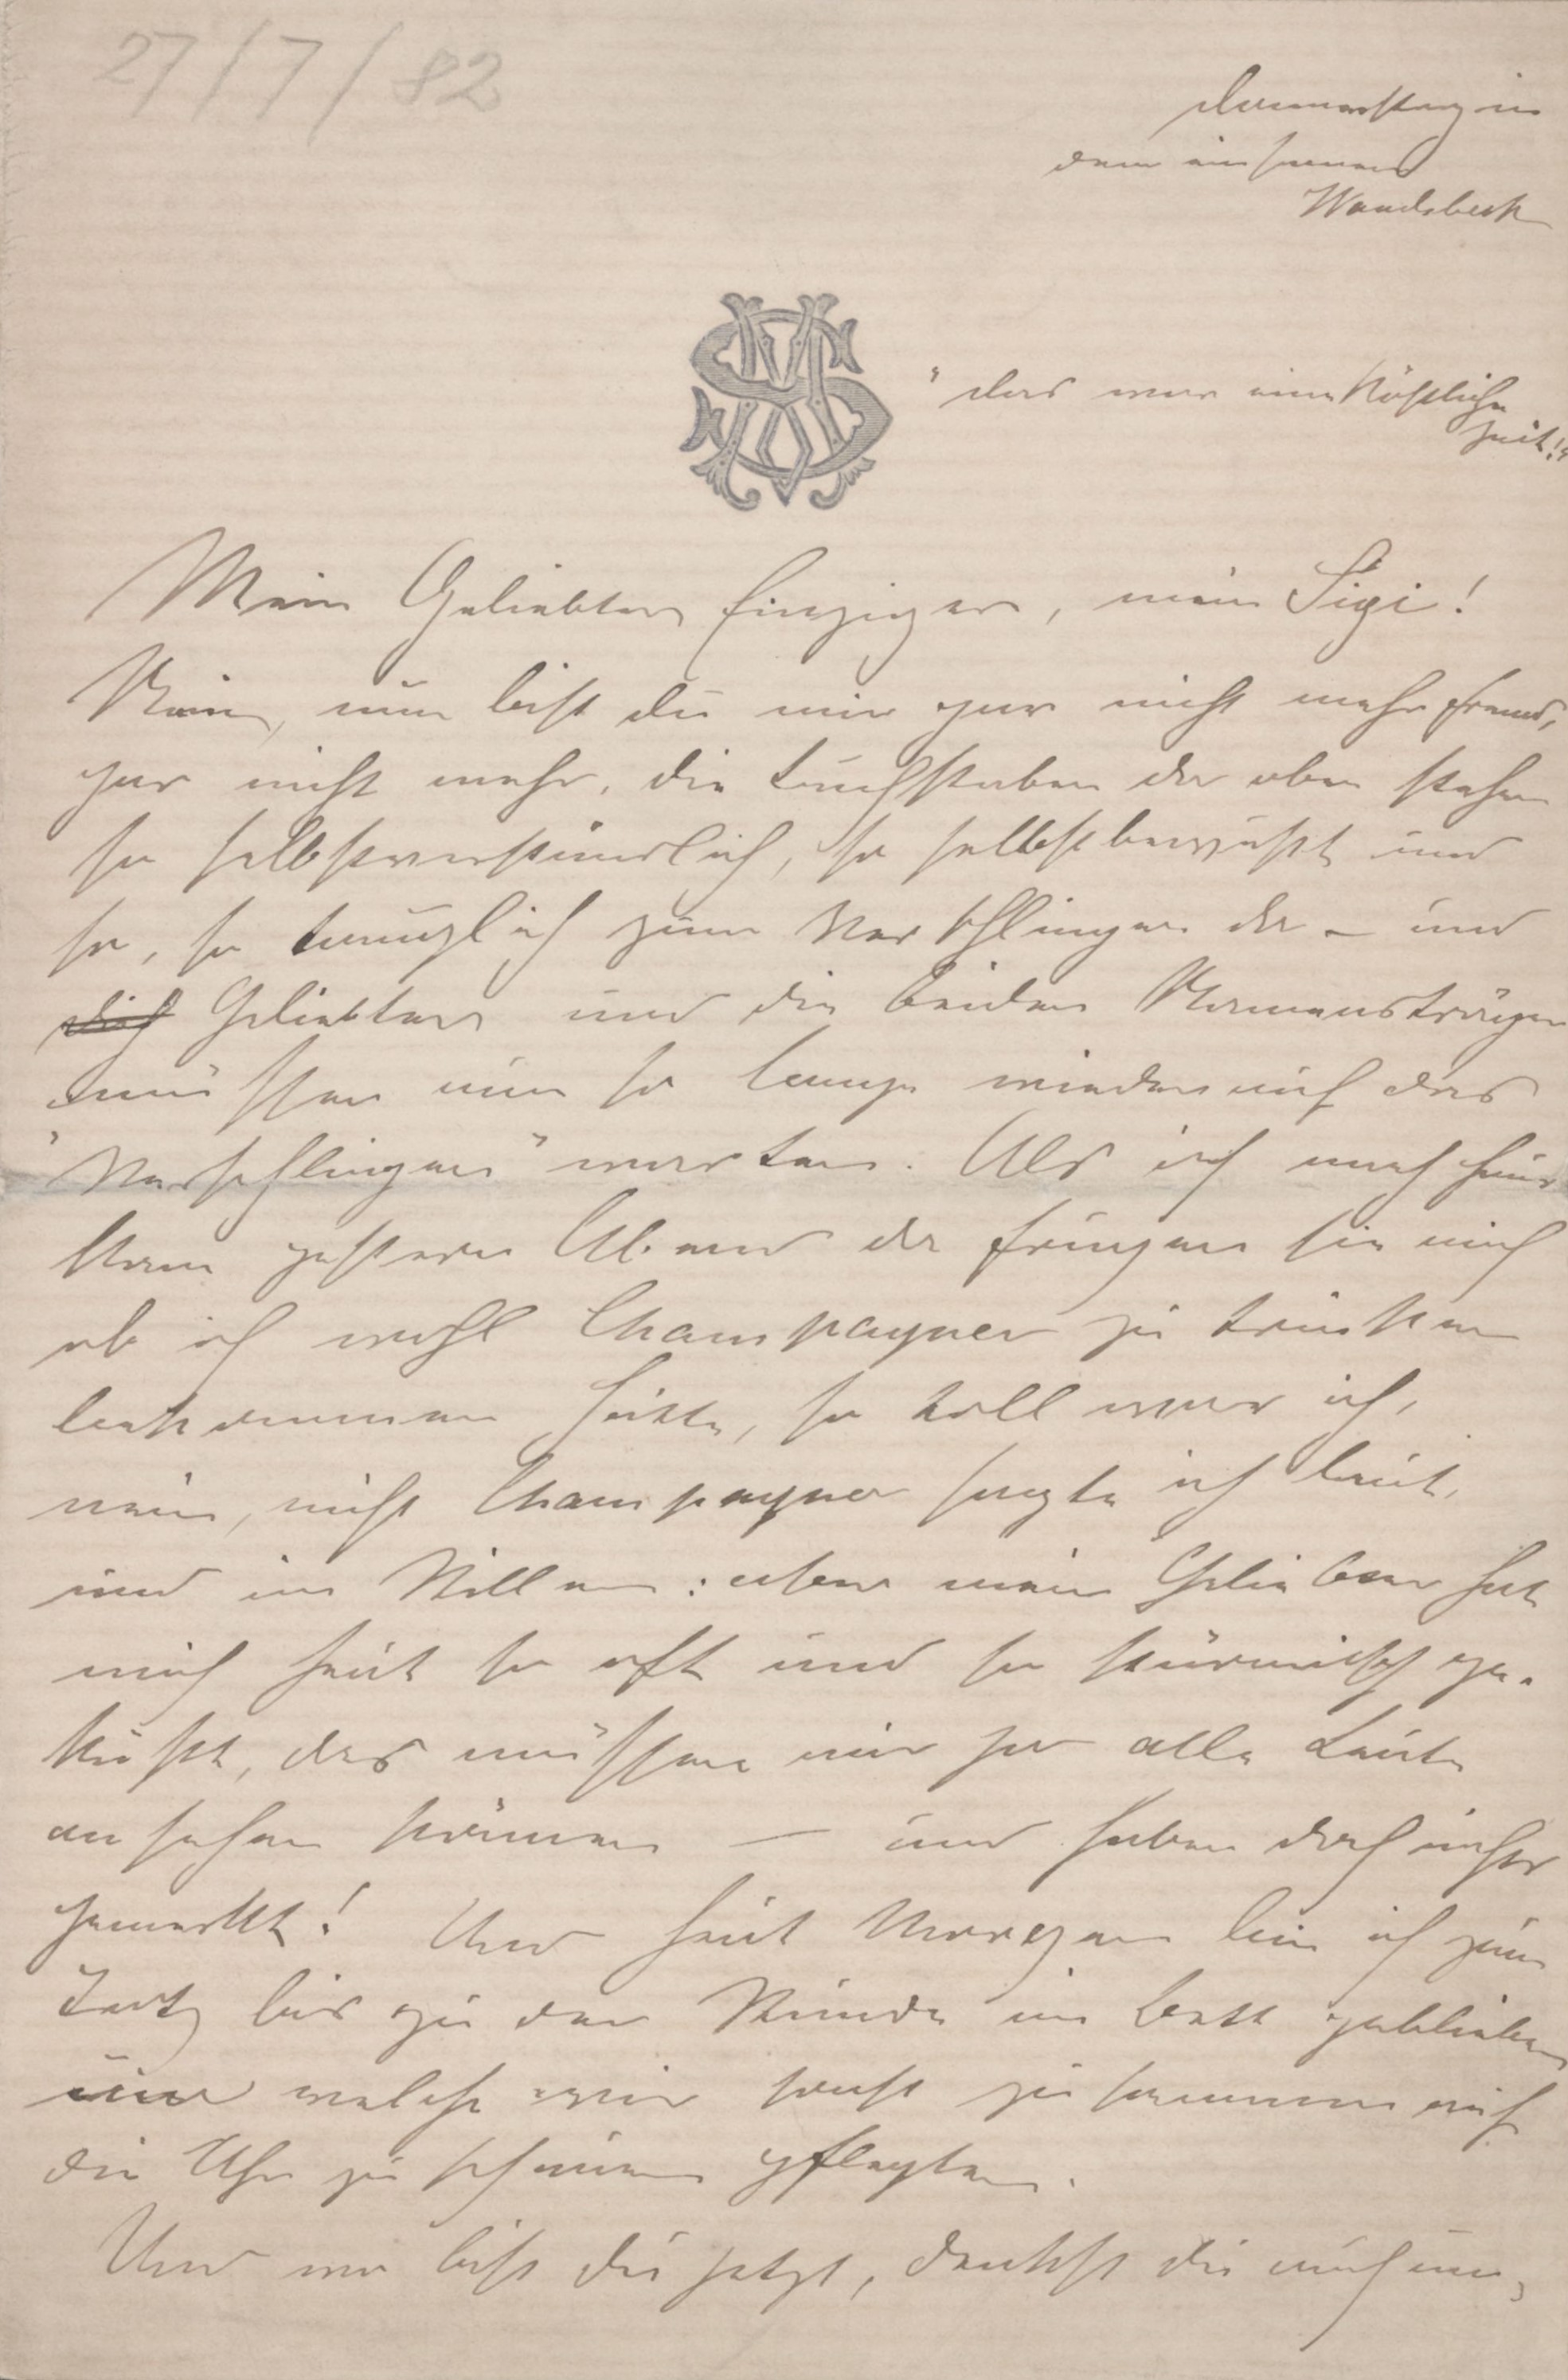 27/7/82
Donnerstag in
dem einsamen
Wandsbeck
"das war eine köstliche
Zeit!"
Mein Geliebter Einziger, mein Sigi!
Nein, nun bist du mir gar nicht mehr fremd,
gar nicht mehr, die Buchstaben da oben stehen
so selbstverständlich, so selbstbewußt und
so, so tauglich zum Verschlingen da – und
dich Geliebter und die beiden Namensträger
müssen nun so lange wieder auf das
"Verschlingen" warten. Als ich nach Haus
kam gestern Abend da frugen sie mich
ob ich wohl Champagner zu trinken
bekommen hätte, so toll war ich,
nein, nicht Champagner sagte ich laut,
und im Stillen: aber mein Geliebter hat
mich heut so oft und so stürmisch ge-
küßt, das müssen mir ja alle Leute
ansehen können — und haben doch nichts
gemerkt! Und heut Morgen bin ich zum
Trotz bis zu der Stunde im Bett geblieben
um welche wir sonst zusammen auf
die Uhr zu schauen pflegten.
Und wo bist du jetzt, denkst du auch an